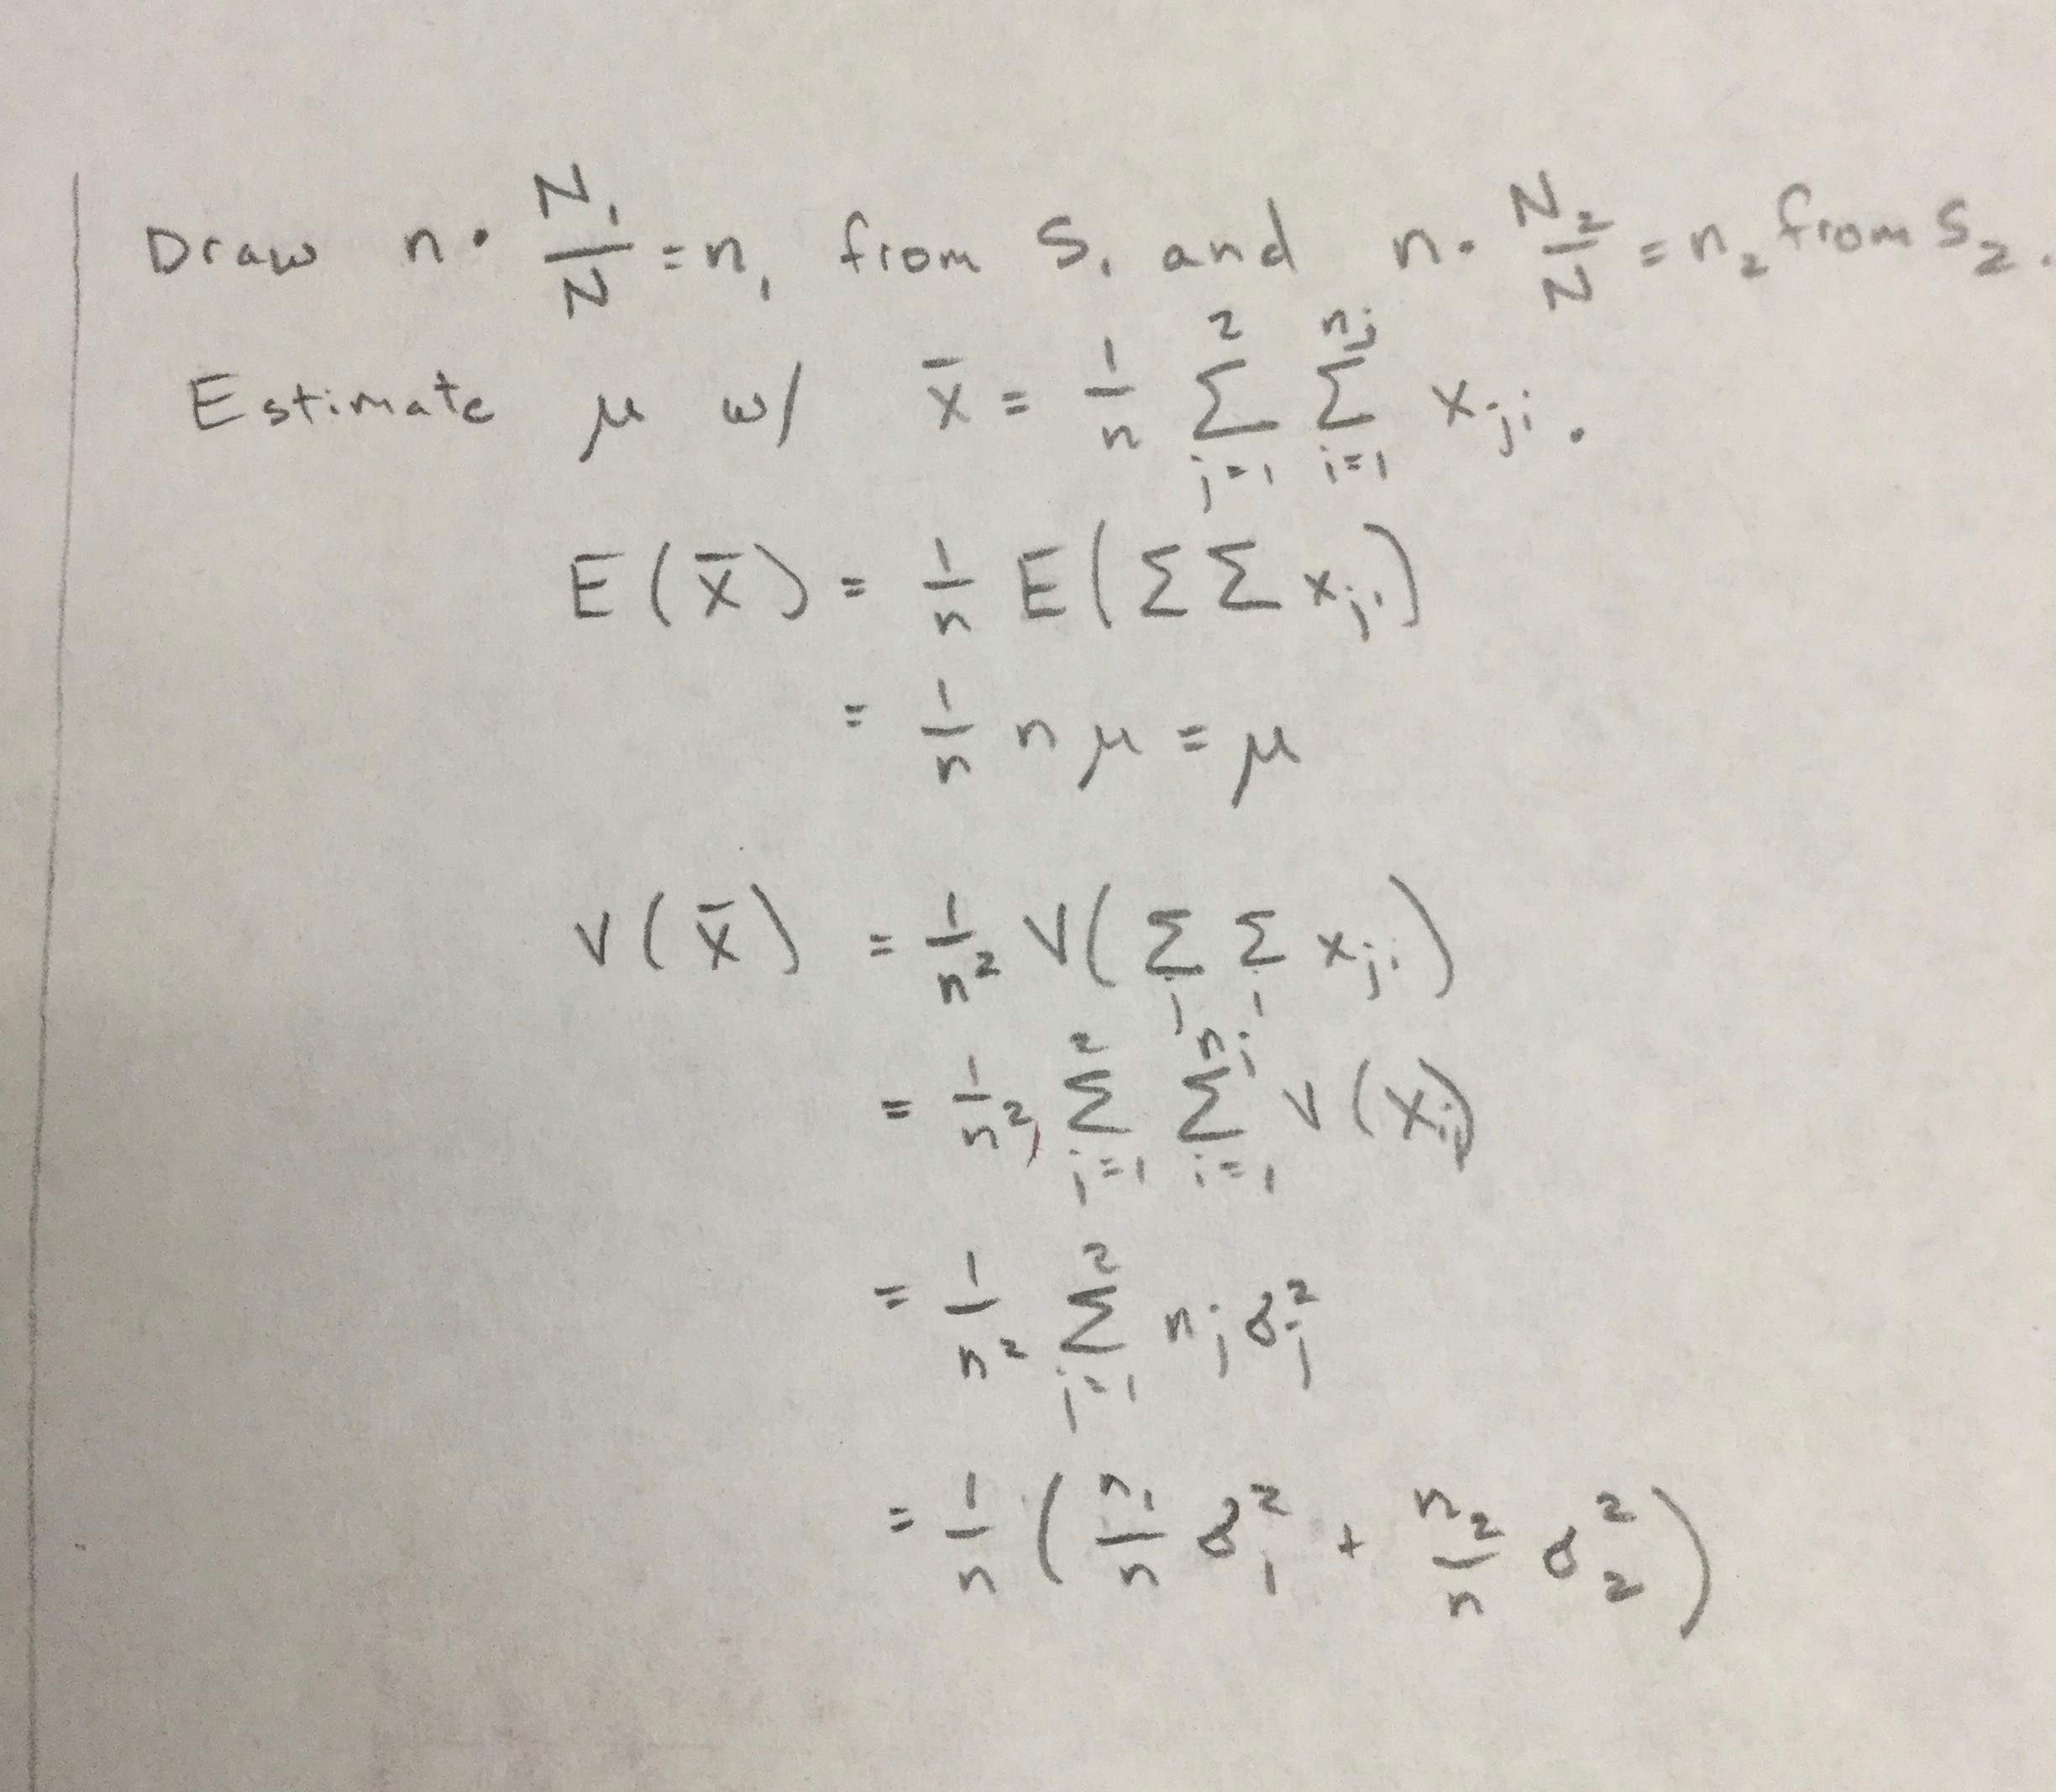 Draw n · N₁/N = n₁ from S₁ and n · N₂/N = n₂ from S₂.
Estimate μ w/ x̄ = 1/n ∑_{j=1}^{2} ∑_{i=1}^{n_j} x_{ji}.
E(x̄) = 1/n E(∑∑ x_{ji})
= 1/n n μ = μ
V(x̄) = 1/n² V(∑_j ∑_i x_{ji})
= 1/n² ∑_{j=1}^{2} ∑_{i=1}^{n_j} V(x_{ij})
= 1/n² ∑_{j=1}^{2} n_j σ_j²
= 1/n (n₁/n σ₁² + n₂/n σ₂²)